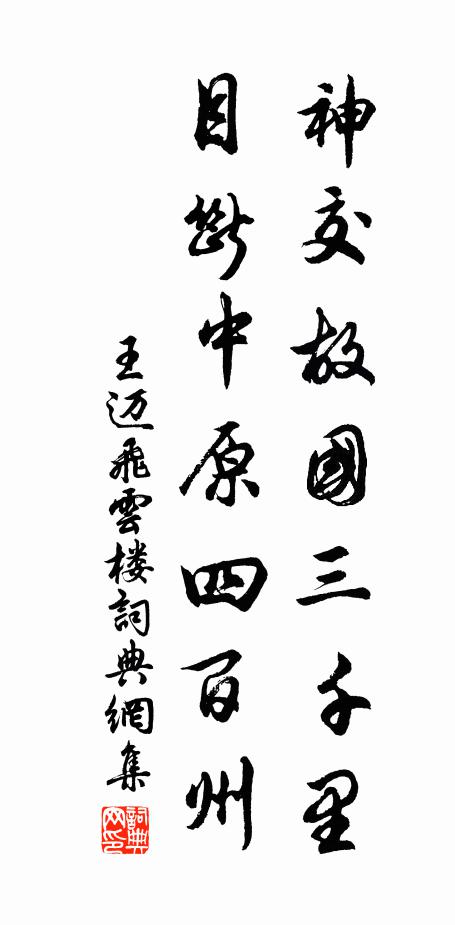 神交故國三千里
目断中原四百州
王迈飛雲楼詞典網集
詞典网印